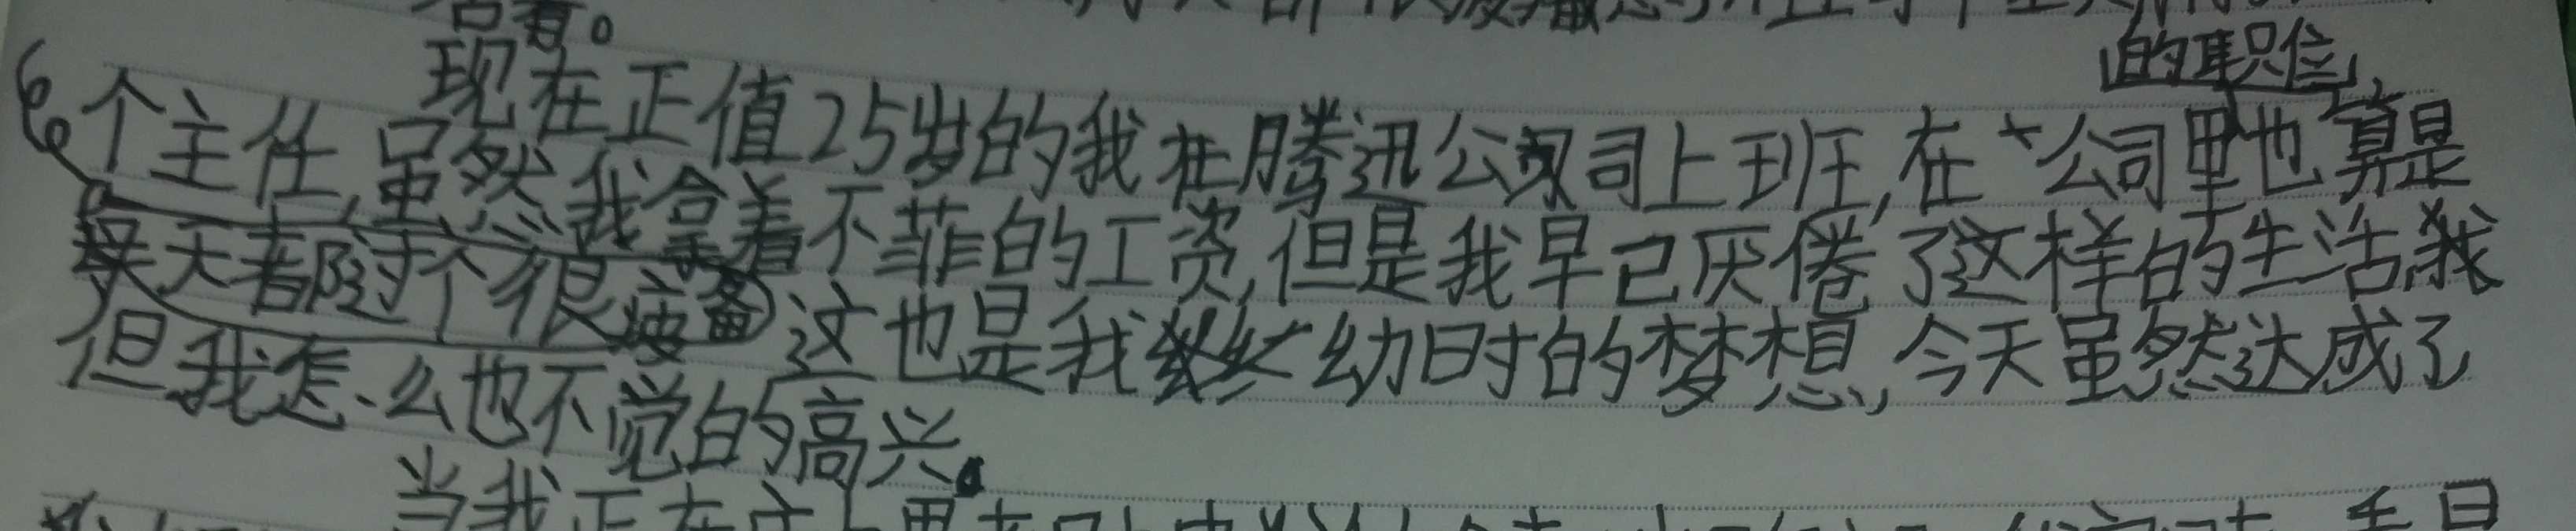 的职位
现在正值25岁的我在腾讯公司上班,在公司里也算是
个主任,虽然我拿着不菲的工资,但是我早已厌倦了这样的生活我
每天都随个很疲备这也是我幼时的梦想,今天虽然达成了
但我怎么也不觉的高兴。
当我正在